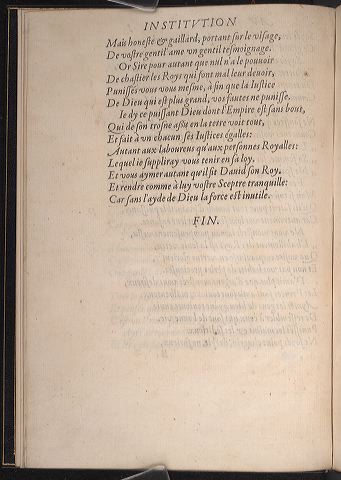 INSTITVTION
Mais honesté & gaillard, portant sur le visage,
De vostre gentil'ame vn gentil tesmoignage.
Or Sire pour autant que nul n'a le pouuoir
De chastier les Roys qui font mal leur deuoir,
Punissés vous vous mesme, à fin que la Iustice
De Dieu qui est plus grand, vos fautes ne punisse.
Ie dy ce puissant Dieu dont l'Empire est sans bout,
Qui de son trosne assis en la terre voit tout,
Et fait à vn chacun ses Iustices égalles:
Autant aux laboureus qu'aux personnes Royalles:
Lequel ie suppliray vous tenir en sa loy,
Et vous aymer autant qu'il fit Dauid son Roy,
Et rendre comme à luy vostre Sceptre tranquille:
Car sans l'ayde de Dieu la force est inutile.
FIN.